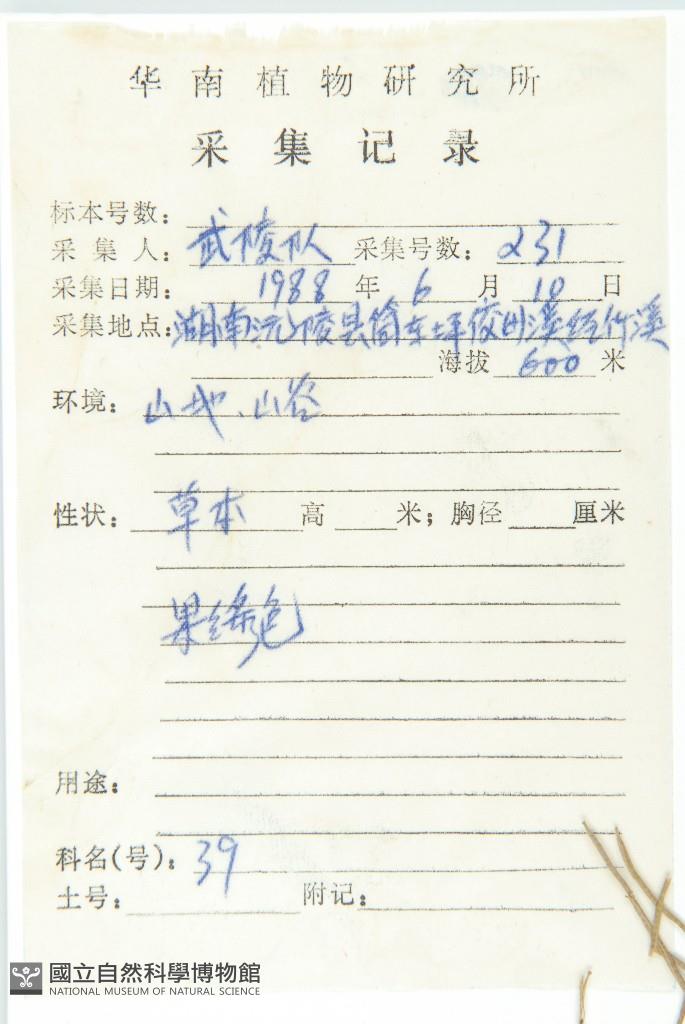 华南植物研究所
采集记录
标本号数：
采集人：武陵队 采集号数：231
采集日期：1988年6月10日
采集地点：湖南沅陵县筒车坪 溪 竹溪
海拔600米
环境：山地、山谷
性状：草本 高 米；胸径 厘米
果绿色
用途：
科名(号)：39
土号： 附记：
國立自然科學博物館
NATIONAL MUSEUM OF NATURAL SCIENCE